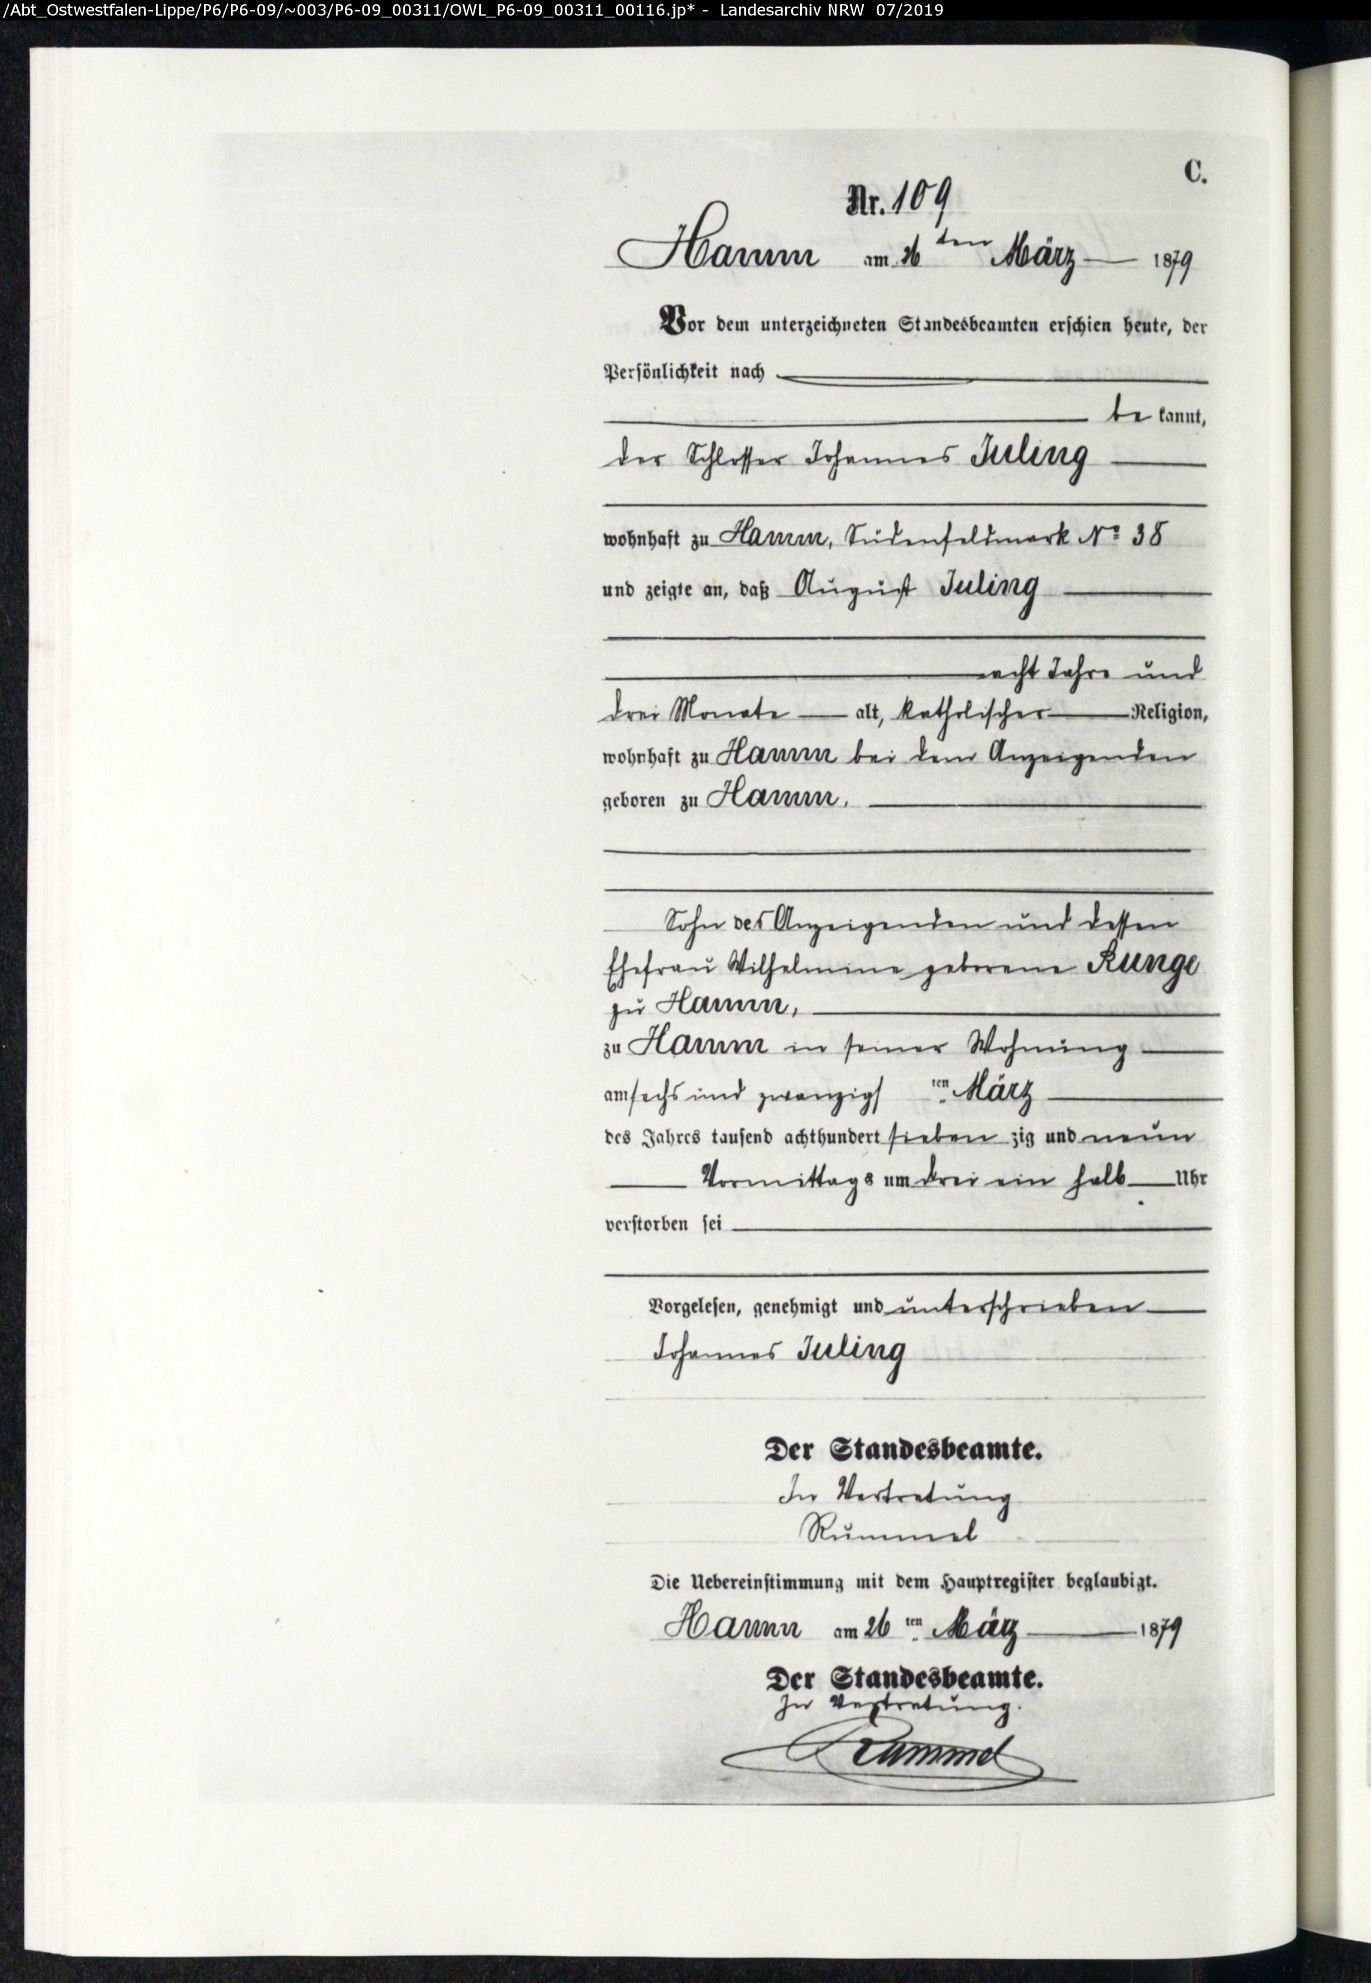 /Abt_Ostwestfalen-Lippe/P6/P6-09/~003/P6-09_00311/OWL_P6-09_00311_00116.jp* - Landesarchiv NRW 07/2019
C.
Nr. 109
Hamm am 26 ten März 1879
Vor dem unterzeichneten Standesbeamten erschien heute, der
Persönlichkeit nach
be kannt,
der Schlosser Johannes Juling
wohnhaft zu Hamm, Südenfeldmark No 38
und zeigte an, daß August Juling
acht Jahre und
drei Monate alt, katholischer Religion,
wohnhaft zu Hamm bei dem Anzeigenden
geboren zu Hamm,
Sohn des Anzeigenden und dessen
Ehefrau Wilhelmine geborene Runge
zu Hamm,
zu Hamm in seiner Wohnung
am sechs und zwanzigs ten März
des Jahres tausend achthundert sieben zig und neun
Vormittags um drei ein halb Uhr
verstorben sei
Vorgelesen, genehmigt und unterschrieben
Johannes Juling
Der Standesbeamte.
In Vertretung
Rummel
Die Uebereinstimmung mit dem Hauptregister beglaubigt.
Hamm am 26 ten März 1879
Der Standesbeamte.
In Vertretung.
Rummel